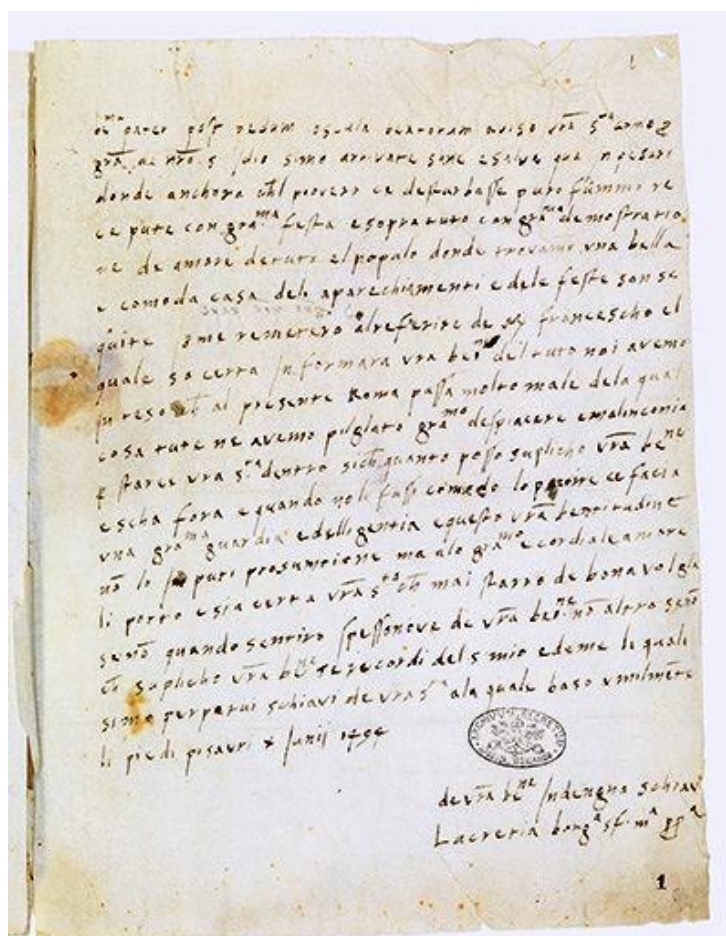 1
pater post pedum oscula beatorum aviso vrã s.ta como p
grã de nrõ s Idio simo arivate sane e salve qua in pesaro
donde anchora chel piovere ce desturbasse puro fummo re
cepute con grã.ma festa e sopra tuto con grã.ma demostratio
ne de amore de tuto el popolo donde trovamo una bella
e comoda casa deli aparechiamenti e dele feste son se
guite me remetero al referire de francescho el
quale so certa Informara vrã bei.ne del tuto noi avemo
Inteso ch̃ al presente Roma passa molto male dela qual
cosa tute ne avemo pilglato grã.mo despiacere e malinconia
p starce vrã s.ta dentro sich̃ quanto posso suplicho vrã be.ne
escha fora e quando no li fussi comodo lo partire ce facia
una grã.ma guardia e delligentia e questo vrã beatitudine
nõ lo Inputi prosumtione ma alo grã.mo e cordiale amore
li porto e sia certa vrã s.ta ch̃ mai starro de bona volglia
senõ quando sentiro spesso nove de vrã bei.ne nõ altro senõ
ch̃ suplicho vrã be.ne se recordi del s mio e de me li quali
simo perpetui schiavi de vrã s.ta ala quale baso umilmẽte
li piedi pisauri x Junii 1494
ARCHIVUM SECRETUM
de vrã be.ne Indengna schiava
Lucretia borg.a sf. m.a pp.a
1